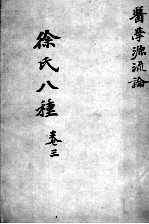 醫學源流論
徐氏八種 卷三